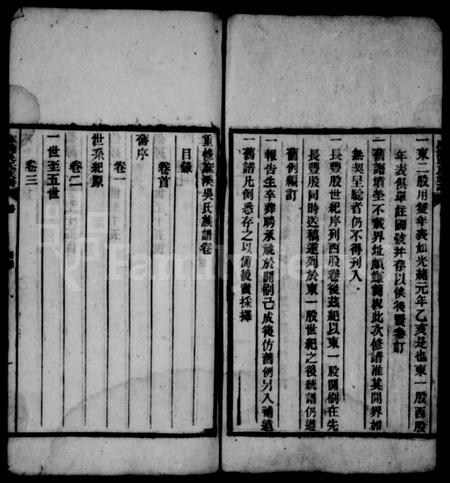 一東一股用雙年表如光緒元年乙亥是也東一股西股
年表俱單註國號并存以俟後賢參訂
一舊譜墳塋不載界址頗慈此次修譜准其開界如
無契呈驗者仍不得刊入
一長豐股世紀序列西股卷後茲紀以東一股開刻在先
長豐股同時送稿遂列於東一股世紀之後統譜仍遵
舊例編訂
一報告生卒葬聘承祧於開刻已成後仿舊例另入補遺
一舊譜凡例悉存之以備後賢採擇
重修 溪吳氏族譜卷
目錄
卷首
舊序
卷一
世系紀原
卷二
一世至五世
卷三